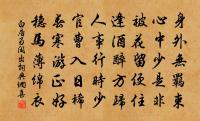 身外無羈束
心中少是非
被花留便住
逢酒醉方歸
人事行時少
官曹入日稀
春寒遊正好
穩馬薄綿衣
白居易閑出詞典網書